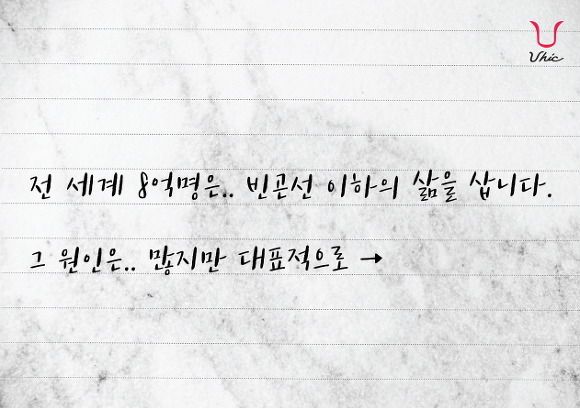 Uhic
전 세계 8억명은.. 빈곤선 이하의 삶을 삽니다.
그 원인은.. 많지만 대표적으로 →